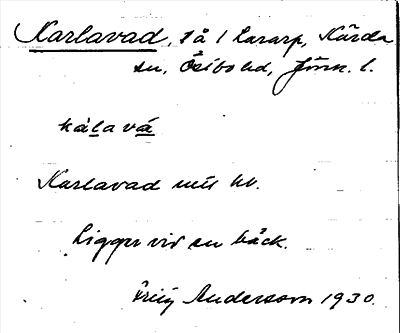 Karlavad, på 1 Lararp, Kärda
sn, Östbo hd, Jönk. l.
kálavá
Karlavad
Ligger vid en bäck.
Andersson 1930.